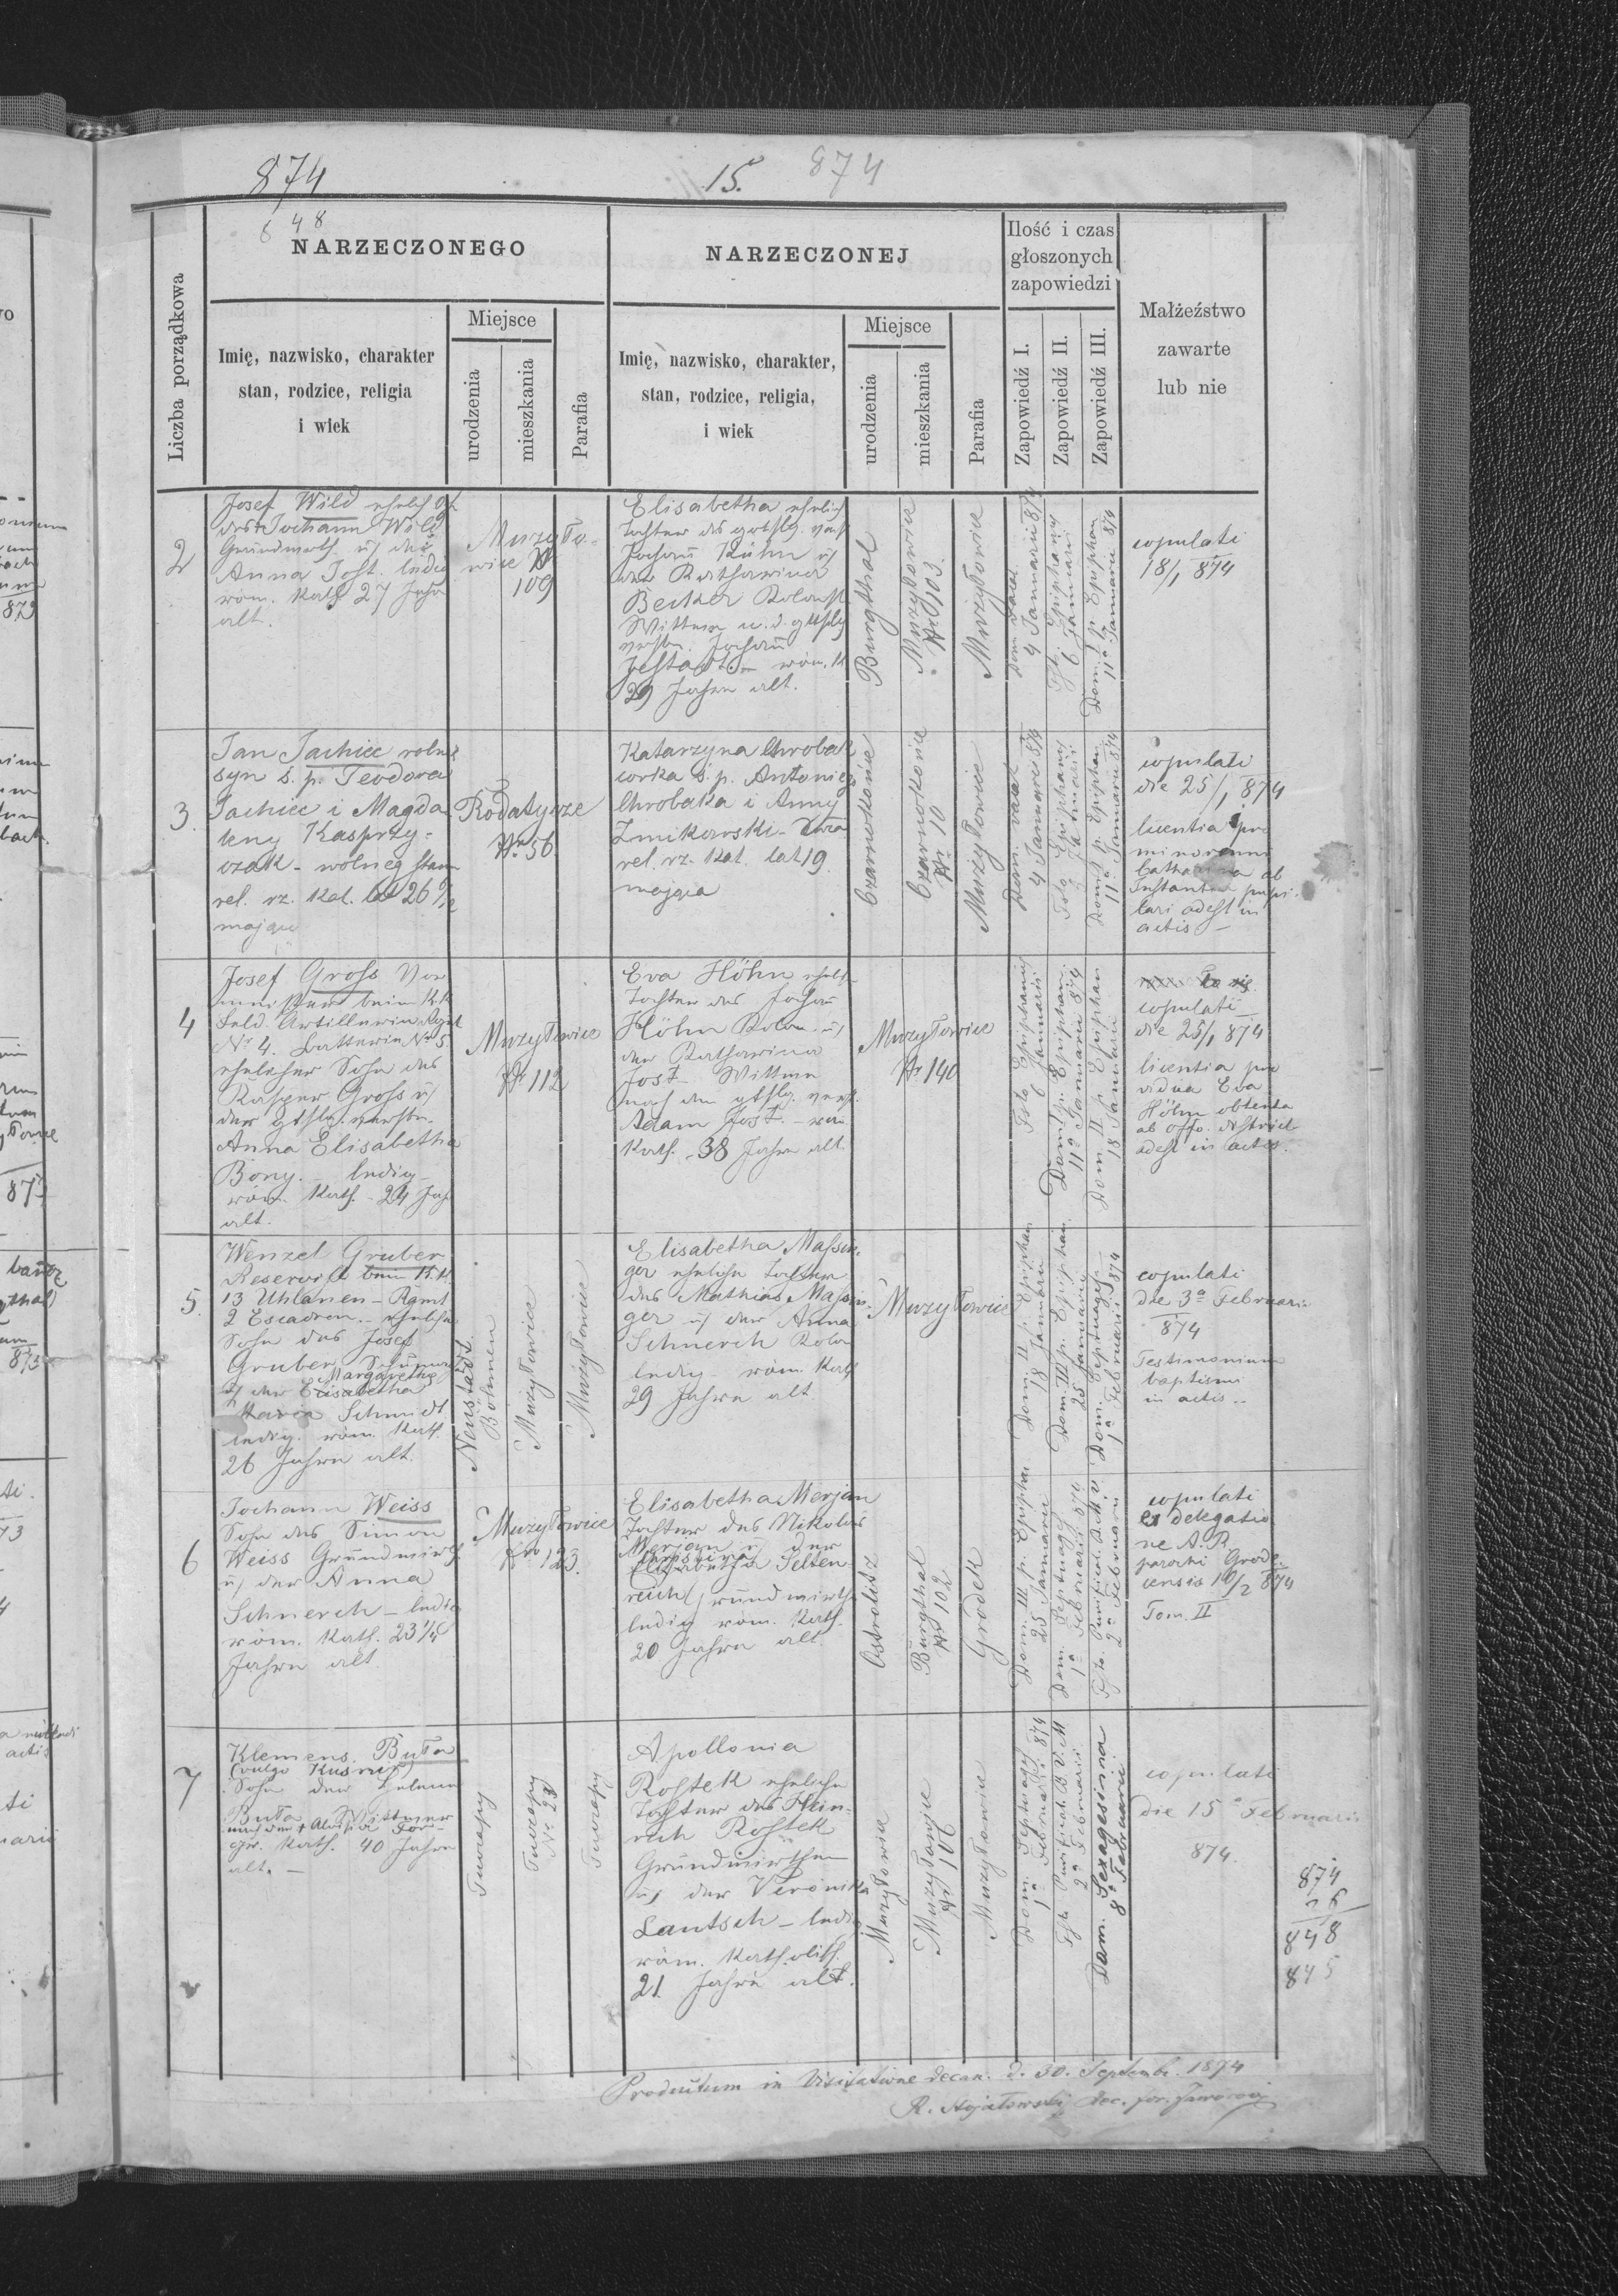 874
15.
874
6 48
Liczba porządkowa
NARZECZONEGO
NARZECZONEJ
Ilość i czas
głoszonych
zapowiedzi
Małżeństwo
zawarte
lub nie
Imię, nazwisko, charakter
stan, rodzice, religia
i wiek
Miejsce
urodzenia
mieszkania
Parafia
Imię, nazwisko, charakter,
stan, rodzice, religia,
i wiek
Miejsce
urodzenia
mieszkania
Parafia
Zapowiedź I.
Zapowiedź II.
Zapowiedź III.
2
Josef Wild ehelich
des Johann Wild
Grundwirth u der
Anna Jost. ledig
röm. Kath 27 Jahr
alt.
Muzyło-
wice
109
Elisabetha ehelich
Tochter des gottslg. verst
Johañ Kühn u
der Katharina
Becker Kolonist
Wittwe n. d. gttslg
verstn. Johañ
röm. K
29 Jahre alt.
Burgthal
Muzyłowice
Nr 103.
Muzyłowice
Dom. vacat
4 Januarii 874
Fst. Epiphany
6 Januarii
Dom. I p. Epiphan
11a Januarii 874
copulati
18/1 874
3.
Jan Jachiec rolnik
syn ś. p. Teodora
Jachiec i Magda
leny Kasprzy-
czak - wolneg stanu
rel. rz. kat. lat 26 1/2
mając
Rodatycze
Nr 56
Katarzyna Chrobak
corka ś. p. Antonieg
Chrobaka i Anny
Żmikowski
rel. rz. kat. lat 19
mająca
Czarnokońce
Czarnokońce
Nr 10
Muzyłowice
Dom. vacat
4 Januarii 874
Fsto Epiphany
6 Januarii
Dom I p. Epiphan
11a Januarii 874
copulati
die 25/1 874
licentia pro
minorenni
Catharina ab
Instantia pupi-
lari adest in
actis —
4
Josef Gross Vor
meister beim K.K.
Feld Artillerie Rgmt
No 4. Batterie No 5
ehelicher Sohn des
Kasper Gross u
der gttslg. verstn.
Anna Elisabetha
Bony. ledig -
röm. Kath. - 24 Jahr
alt.
Muzyłowice
Nr 112
Eva Höhn ehelch
Tochter des Johañ
Höhn Kolon. u
der Katharina
Jost - Wittwe
nach dem gttslg. verst.
Adam Jost. - röm
Kath. - 38 Jahre alt.
Muzyłowice
Nr 140
Fsto Epiphany
6 Januarii
Dom I p. Epiphan.
11a Januarii 874
Dom. II p. Epiphan
18 Januarii
copulati
die 25/1 874
licentia pro
vidua Eva
Höhn obtenta
ab offo. district
adest in actis.
5.
Wenzel Gruber
Reservist beim K.K.
13 Uhlanen - Rgmt
2 Escadron. - ehelicher
Sohn des Josef
Gruber
Margaretha
u der Elisabetha
Maria Schmidt
ledig. röm. Kath.
26 Jahre alt.
Neustadt
Böhmen
Muzyłowice
Muzyłowice
Elisabetha Massin-
ger eheliche Tochter
des Mathias Massin-
ger u der Anna
Schnerch Kolon
ledig - röm. Kath
29 Jahre alt
Muzyłowice
Dom. II p. Epiphan
18 Januarii
Dom. III p. Epiphan
25 Januarii
Dom. Septuages.
1a Februarii 874
copulati
die 3a Februarii
874
Testimonium
baptismi
in actis -
6
Johann Weiss
Sohn des Simon
Weiss Grundwirth
u der Anna
Schnerch - ledig
röm. Kath. 23 1/4
Jahre alt.
Muzyłowice
Nro 123.
Elisabetha Merjan
Tochter des Nikolaus
Merjan u der
Elisabetha Selten-
reich Grundwirth
ledig röm. Kath.
20 Jahre alt
Burgthal
Nr 102
Gródek
Dom. III p. Epiphan
25 Januarii
Dom. Septuages
1a Februarii 874
Fsto. Purificat. B.M.V.
2a Februarii
copulati
ex delegatio
ne A. R.
parochi Grode-
censis 10/2 874
Tom. II
7
Klemens Buta
(vulgo Kusnir)
Sohn der Helena
Buta Wittwer
gr. Kath. 40 Jahre
alt. —
Tuczapy
Tuczapy
No 23
Tuczapy
Apollonia
Rostek eheliche
Tochter des Hein-
rich Rostek
Grundwirthen
u der Veronika
Lautsch - ledig
röm. Katholisch
21 Jahre alt.
Muzyłowice
Muzyłowice
Nr 106
Muzyłowice
Dom. Septuages
1a Februarii 874
Fsto Purificat. B.V.M.
2a Februarii
Dom. Sexagesima
8a Februarii
copulati
die 15a Februarii
874.
874
26
848
845
Productum in Visitatione decan. d. 30. Septemb. 1874
R. Stojałowski dec. for. Jaworow